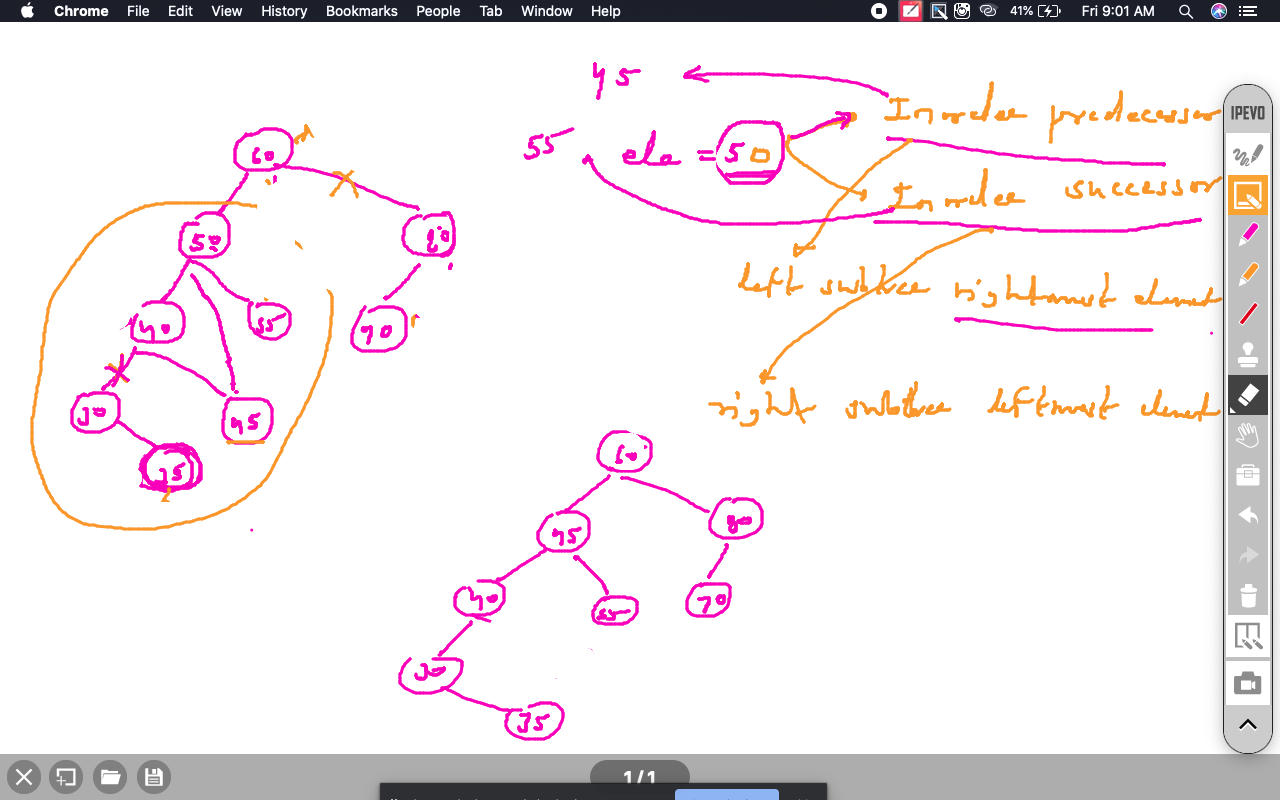 Chrome File Edit View History Bookmarks People Tab Window Help 41% Fri 9:01 AM
45
Inorder predecessor
55 ele = 50
Inorder successor
left subtree rightmost element
right subtree leftmost element
60
50 80
40 55 70
30 45
35
60
45 80
40 55 70
30
35
IPEVO
1/1